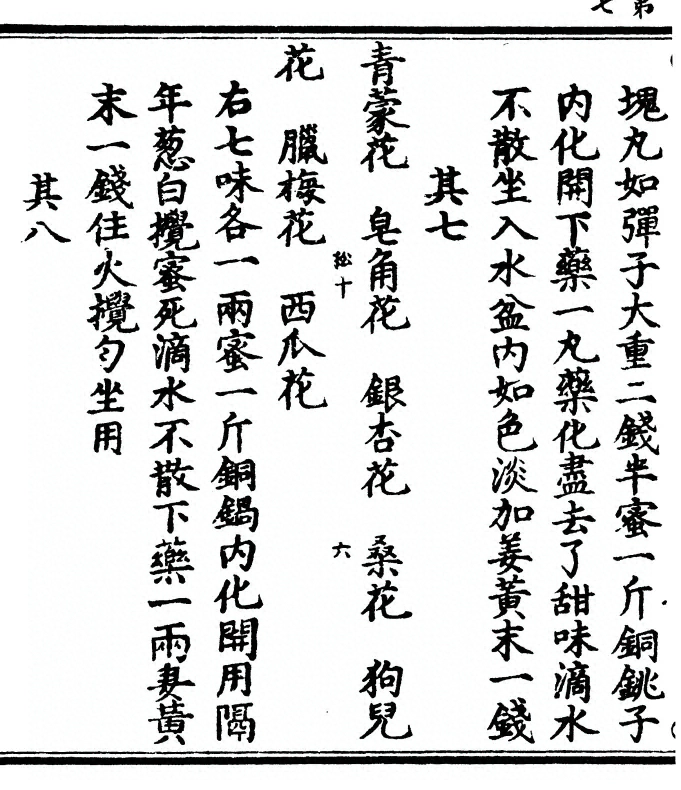 第
七
塊丸如彈子大重二錢半蜜一斤銅銚子
内化開下藥一丸藥化盡去了甜味滴水
不散坐入水盆内如色淡加姜黃末一錢
其七
青蒙花　皂角花　銀杏花　桑花　狗兒
松十　六
花　臘梅花　西瓜花
右七味各一兩蜜一斤銅鍋内化開用隔
年葱白攪蜜死滴水不散下藥一兩姜黃
末一錢住火攪勻坐用
其八